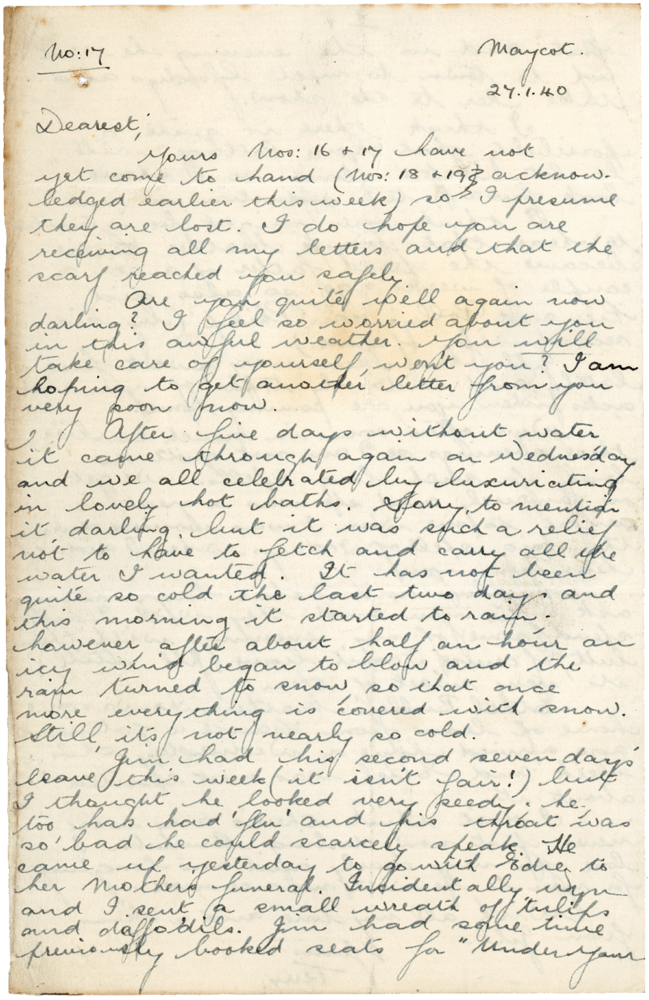 No: 17
Maycot.
27.1.40
Dearest,
Yours Nos: 16 + 17 have not
yet come to hand (Nos: 18 + 19 acknow-
ledged earlier this week) so I presume
they are lost. I do hope you are
receiving all my letters and that the
scarf reached you safely.
Are you quite well again now
darling? I feel so worried about you
in this awful weather. You will
take care of yourself, won't you? I am
hoping to get another letter from you
very soon now.
After five days without water
it came through again on Wednesday
and we all celebrated by luxuriating
in lovely hot baths. Sorry to mention
it darling, but it was such a relief
not to have to fetch and carry all the
water I wanted. It has not been
quite so cold the last two days and
this morning it started to rain.
however after about half an hour an
icy wind began to blow and the
rain turned to snow so that once
more everything is covered with snow.
Still, it's not nearly so cold.
Jim had his second seven days'
leave this week (it isn't fair!) but
I thought he looked very seedy. he
too has had 'flu' and his throat was
so bad he could scarcely speak. He
came up yesterday to go with Edie to
her Mother's funeral. Insidentally
and I sent a small wreath of tulips
and daffodils. Jim had some time
previously booked seats for "Under Your